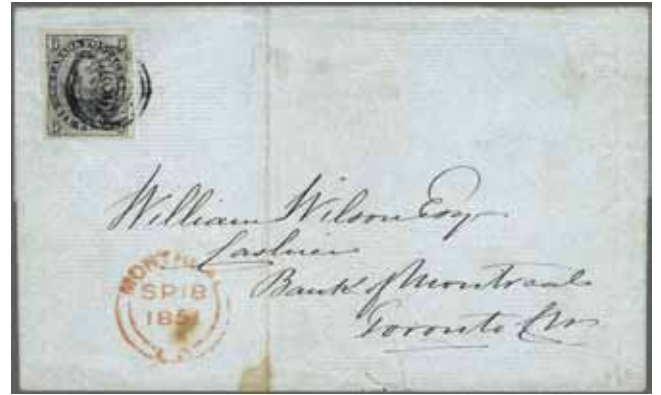 CANADA POSTAGE
William Wilson Esq
Cashier
Bank of Montreal
Toronto CW
MONTREAL
SP 18
1851
L.C.